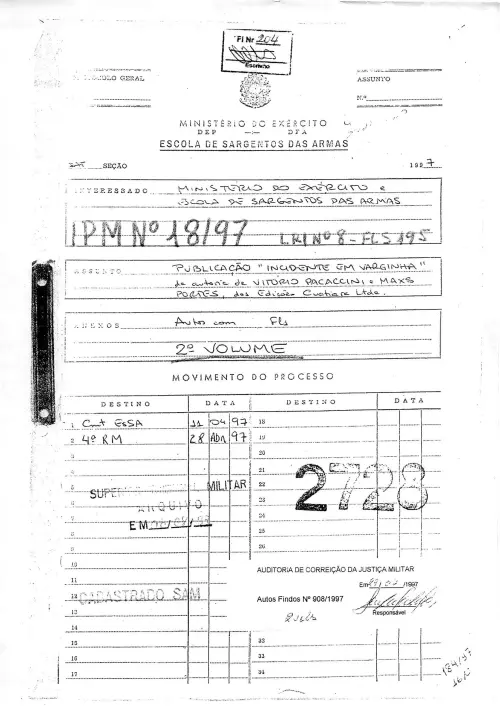 Fl Nr 204
Escrivão
GERAL
ASSUNTO
N.º
MINISTÉRIO DO EXÉRCITO
DEP —:— DFA
ESCOLA DE SARGENTOS DAS ARMAS
SEÇÃO
1997
INTERESSADO MINISTÉRIO DO EXÉRCITO e
ESCOLA DE SARGENTOS DAS ARMAS
IPM Nº 18/97 LRI Nº 8 - FLS 195
ASSUNTO PUBLICAÇÃO "INCIDENTE EM VARGINHA"
de autoria de VITÓRIO PACACCINI e MAXS
PORTES, das Edições Cuatiara Ltda.
ANEXOS Autos com Fls
2º VOLUME
MOVIMENTO DO PROCESSO
DESTINO DATA DESTINO DATA
1 Cmt EsSA 11 04 97 18
2 4ª RM 28 Abr 97 19
3 20
4 21
5 SUPERIOR MILITAR 22
6 ARQUIVO 23
7 EM 24
8 25
9 26
2728
10
11
12 CADASTRADO SAM
13
14
AUDITORIA DE CORREIÇÃO DA JUSTIÇA MILITAR
Em /1997
Autos Findos Nº 908/1997
Responsável
2 vols
15 32
16 33
17 34
184/97